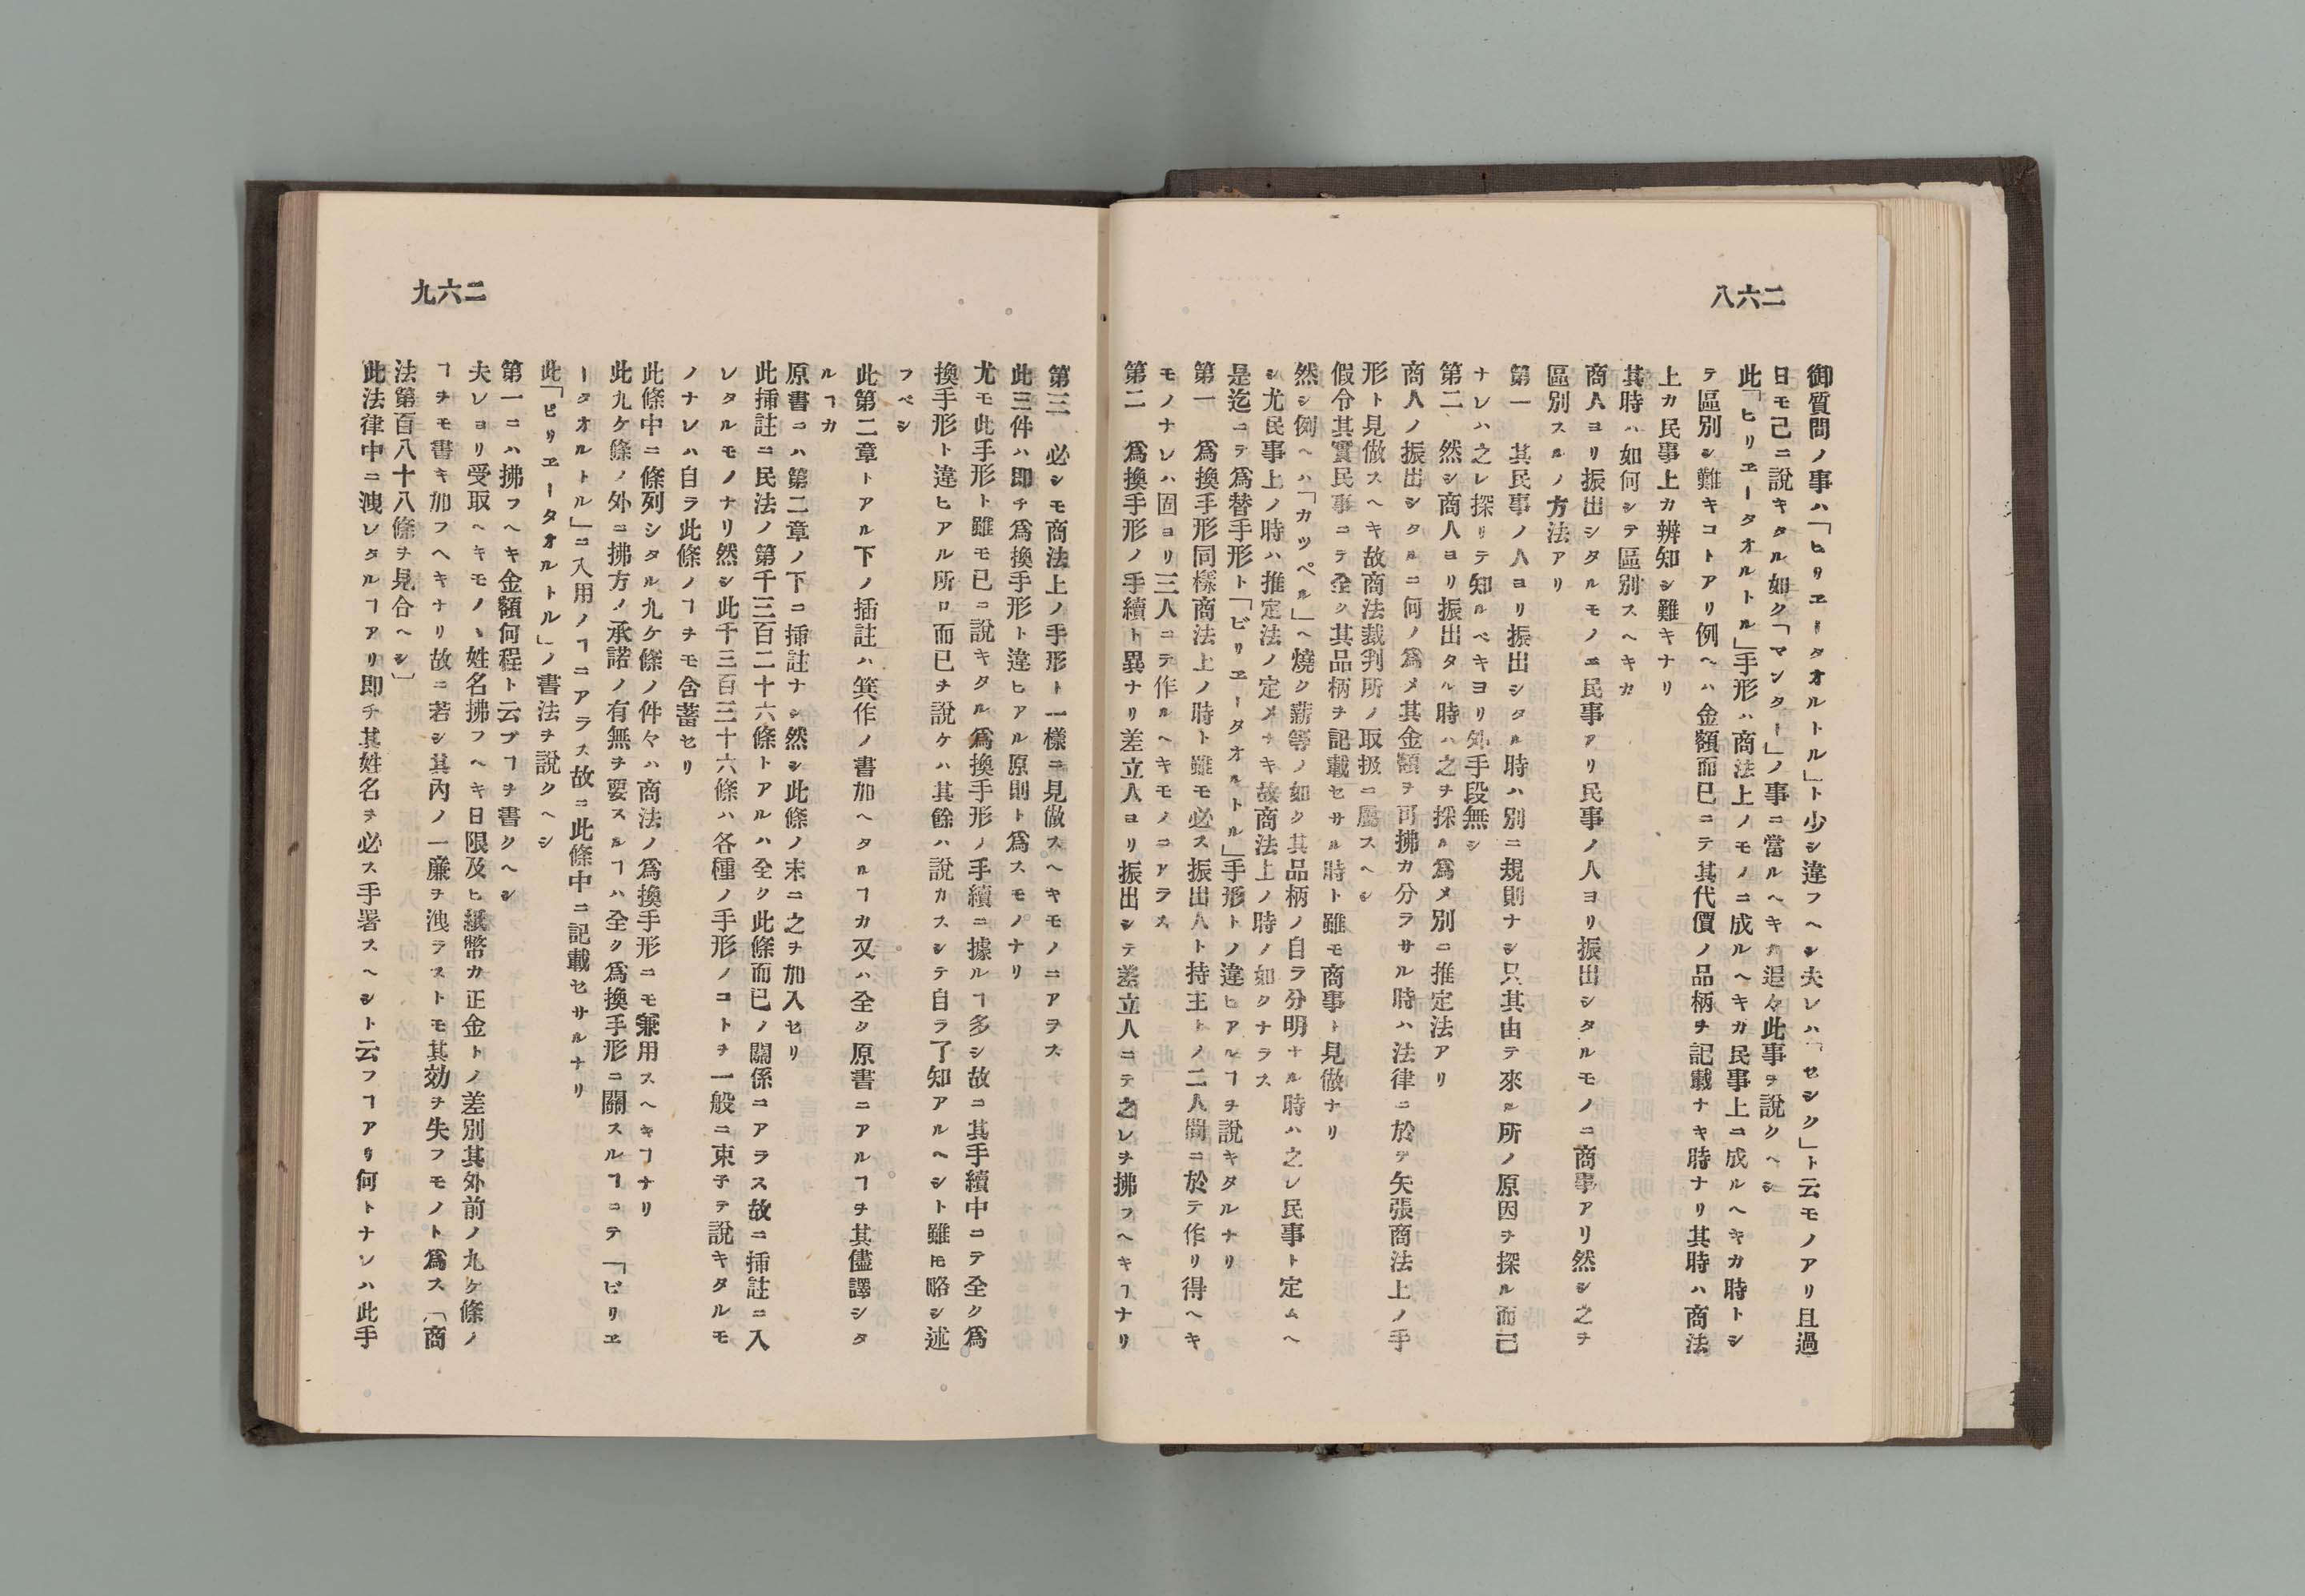 二六八
御質問ノ事ハ「ヒリヱータオルトル」ト少シ違フヘシ夫レハ「セシク」ト云モノアリ且過
日モ己ニ說キタル如ク「マンター」ノ事ニ當ルヘキカ追々此事ヲ說クヘシ
此「ヒリヱータオルトル」手形ハ商法上ノモノニ成ルヘキカ民事上ニ成ルヘキカ時トシ
テ區別シ難キコトアリ例ヘハ金額而已ニテ其代價ノ品柄ヲ記載ナキ時ナリ其時ハ商法
上カ民事上カ辨知シ難キナリ
其時ハ如何シテ區別スヘキカ
商人ヨリ振出シタルモノニ民事アリ民事ノ人ヨリ振出シタルモノニ商事アリ然シ之ヲ
區別スルノ方法アリ
第一 其民事ノ人ヨリ振出シタル時ハ別ニ規則ナシ只其由テ來ル所ノ原因ヲ探ル而己
ナレハ之レ探リテ知ルベキヨリ外手段無シ
第二 然シ商人ヨリ振出タル時ハ之ヲ採ル爲メ別ニ推定法アリ
商人ノ振出シタルニ何ノ爲メ其金額ヲ可拂カ分ラサル時ハ法律ニ於テ矢張商法上ノ手
形ト見做スヘキ故商法裁判所ノ取扱ニ屬スヘシ
假令其實民事ニテ全ク其品柄ヲ記載セサル時ト雖モ商事ト見做ナリ
然シ例ヘハ「カツペル」ヘ燒ク薪等ノ如ク其品柄ノ自ラ分明ナル時ハ之レ民事ト定ムヘ
シ尤民事上ノ時ハ推定法ノ定メナキ故商法上ノ時ノ如クナラス
是迄ニテ爲替手形ト「ビリヱータオルトル」手形トノ違ヒアルヿヲ說キタルナリ
第一 爲換手形同樣商法上ノ時ト雖モ必ス振出人ト持主トノ二人間ニ於テ作リ得ヘキ
モノナレハ固ヨリ三人ニテ作ルヘキモノニアラス
第二 爲換手形ノ手續ト異ナリ差立人ヨリ振出シテ差立人ニテ之レヲ拂フヘキヿナリ
二六九
第三 必シモ商法上ノ手形ト一樣ニ見做スヘキモノニアラス
此三件ハ即チ爲換手形ト違ヒアル原則ト爲スモノナリ
尤モ此手形ト雖モ已ニ說キタル爲換手形ノ手續ニ據ルヿ多シ故ニ其手續中ニテ全ク爲
換手形ト違ヒアル所ロ而已ヲ說ケハ其餘ハ說カスシテ自ラ了知アルヘシト雖モ略シ述
フベシ
此第二章トアル下ノ插註ハ箕作ノ書加ヘタルヿカ又ハ全ク原書ニアルヿヲ其儘譯シタ
ルヿカ
原書ニハ第二章ノ下ニ插註ナシ然シ此條ノ末ニ之ヲ加入セリ
此插註ニ民法ノ第千三百二十六條トアルハ全ク此條而已ノ關係ニアラス故ニ插註ニ入
レタルモノナリ然シ此千三百二十六條ハ各種ノ手形ノコトヲ一般ニ束子テ說キタルモ
ノナレハ自ラ此條ノヿヲモ含蓄セリ
此條中ニ條列シタル九ケ條ノ件々ハ商法ノ爲換手形ニモ兼用スヘキヿナリ
此九ケ條ノ外ニ拂方ノ承諾ノ有無ヲ要スルヿハ全ク爲換手形ニ關スルヿニテ「ビリヱ
ータオルトル」ニ入用ノヿニアラス故ニ此條中ニ記載セサルナリ
此「ビリヱータオルトル」ノ書法ヲ說クヘシ
第一ニハ拂フヘキ金額何程ト云ブヿヲ書クヘシ
夫レヨリ受取ヘキモノヽ姓名拂フヘキ日限及ヒ紙幣カ正金トノ差別其外前ノ九ケ條ノ
ヿヲモ書キ加フヘキナリ故ニ若シ其內ノ一廉ヲ洩ラストモ其効ヲ失フモノト爲ス「商
法第百八十八條ヲ見合ヘシ」
此法律中ニ洩レタルヿアリ即チ其姓名ヲ必ス手署スヘシト云フヿアリ何トナシハ此手